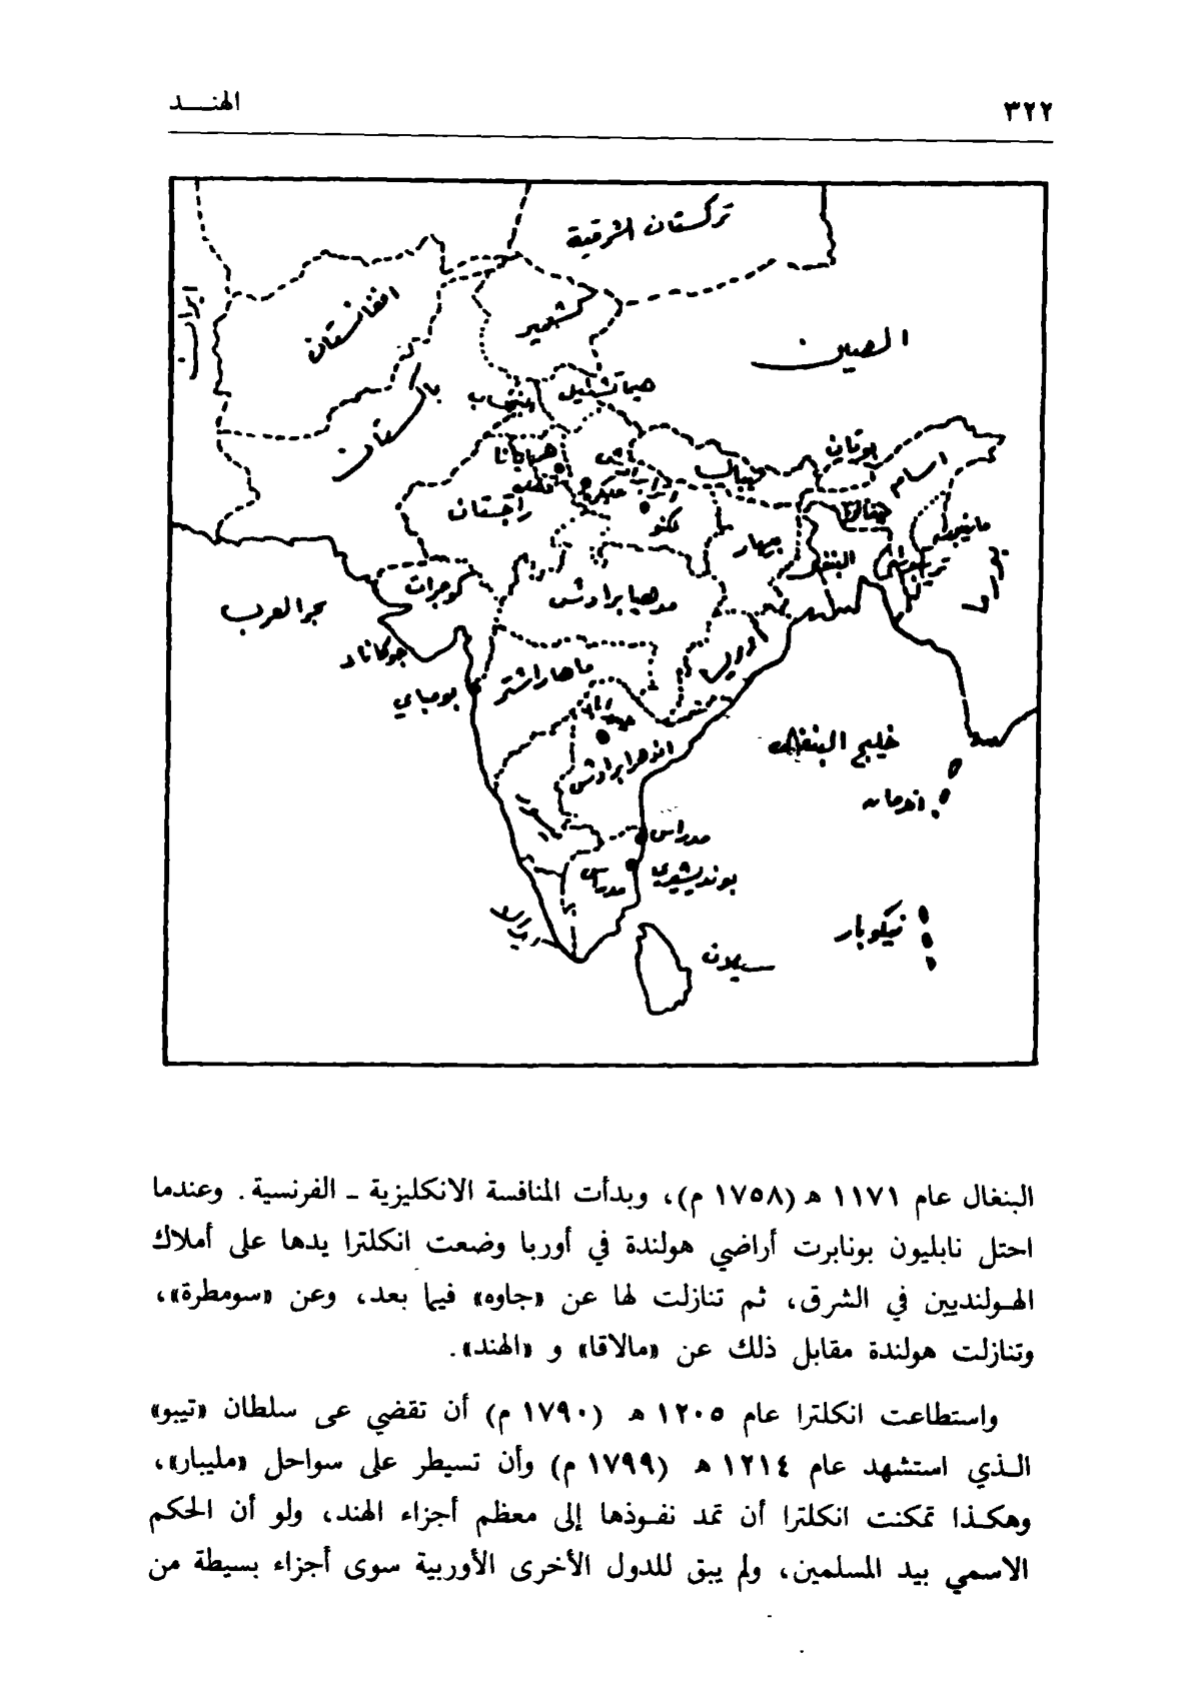 ٣٢٢
الهنـــد
تركستان الشرقية
ايران
افغانستان
كشمير
الصين
باكستان
البنجاب
هيماتشابل
هريانا
نيبال
بوتان
اسام
راجستان
لكنو
بيهار
البنغال
بورما
كوجرات
مدهيا برادش
بحر العرب
جوكاناد
ماهاراشتر
بومباي
خليج البنغال
اندهرا برادش
اندمان
مدراس
مدراس
بونديشيري
نيكوبار
سيلان
البنغال عام ١١٧١ هـ (١٧٥٨ م)، وبدأت المنافسة الانكليزية ـ الفرنسية. وعندما
احتل نابليون بونابرت أراضي هولندة في أوربا وضعت انكلترا يدها على أملاك
الهـولنديين في الشرق، ثم تنازلت لها عن «جاوه» فيما بعد، وعن «سومطرة»،
وتنازلت هولندة مقابل ذلك عن «مالاقا» و «الهند».
واستطاعت انكلترا عام ١٢٠٥ هـ (١٧٩٠ م) أن تقضي عى سلطان «تيبو»
الـذي استشهد عام ١٢١٤ هـ (١٧٩٩ م) وأن تسيطر على سواحل «مليبار»،
وهكـذا تمكنت انكلترا أن تمد نفـوذها إلى معظم أجزاء الهند، ولو أن الحكم
الاسمي بيد المسلمين، ولم يبق للدول الأخرى الأوربية سوى أجزاء بسيطة من